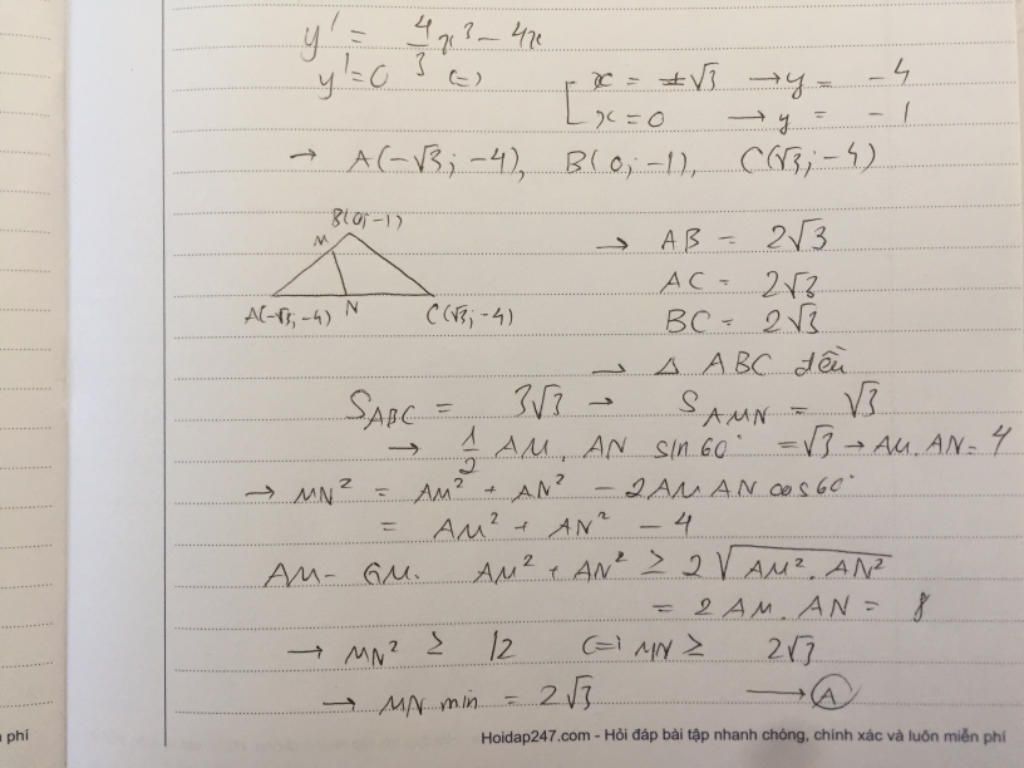 y' = 4/3 x³ - 4x
y' = 0 (=) [ x = ±√3 → y = -4
x = 0 → y = -1
→ A(-√3; -4), B(0; -1), C(√3; -4)
B(0; -1)
M
A(-√3; -4) N C(√3; -4)
→ AB = 2√3
AC = 2√3
BC = 2√3
→ Δ ABC đều
S_ABC = 3√3 → S_AMN = √3
→ 1/2 AM. AN sin 60° = √3 → AM. AN = 4
→ MN² = AM² + AN² - 2AM AN cos 60°
= AM² + AN² - 4
AM - GM. AM² + AN² ≥ 2√(AM². AN²)
= 2 AM. AN = 8
→ MN² ≥ 12 (=) MN ≥ 2√3
→ MN min = 2√3 → A
phí
Hoidap247.com - Hỏi đáp bài tập nhanh chóng, chính xác và luôn miễn phí